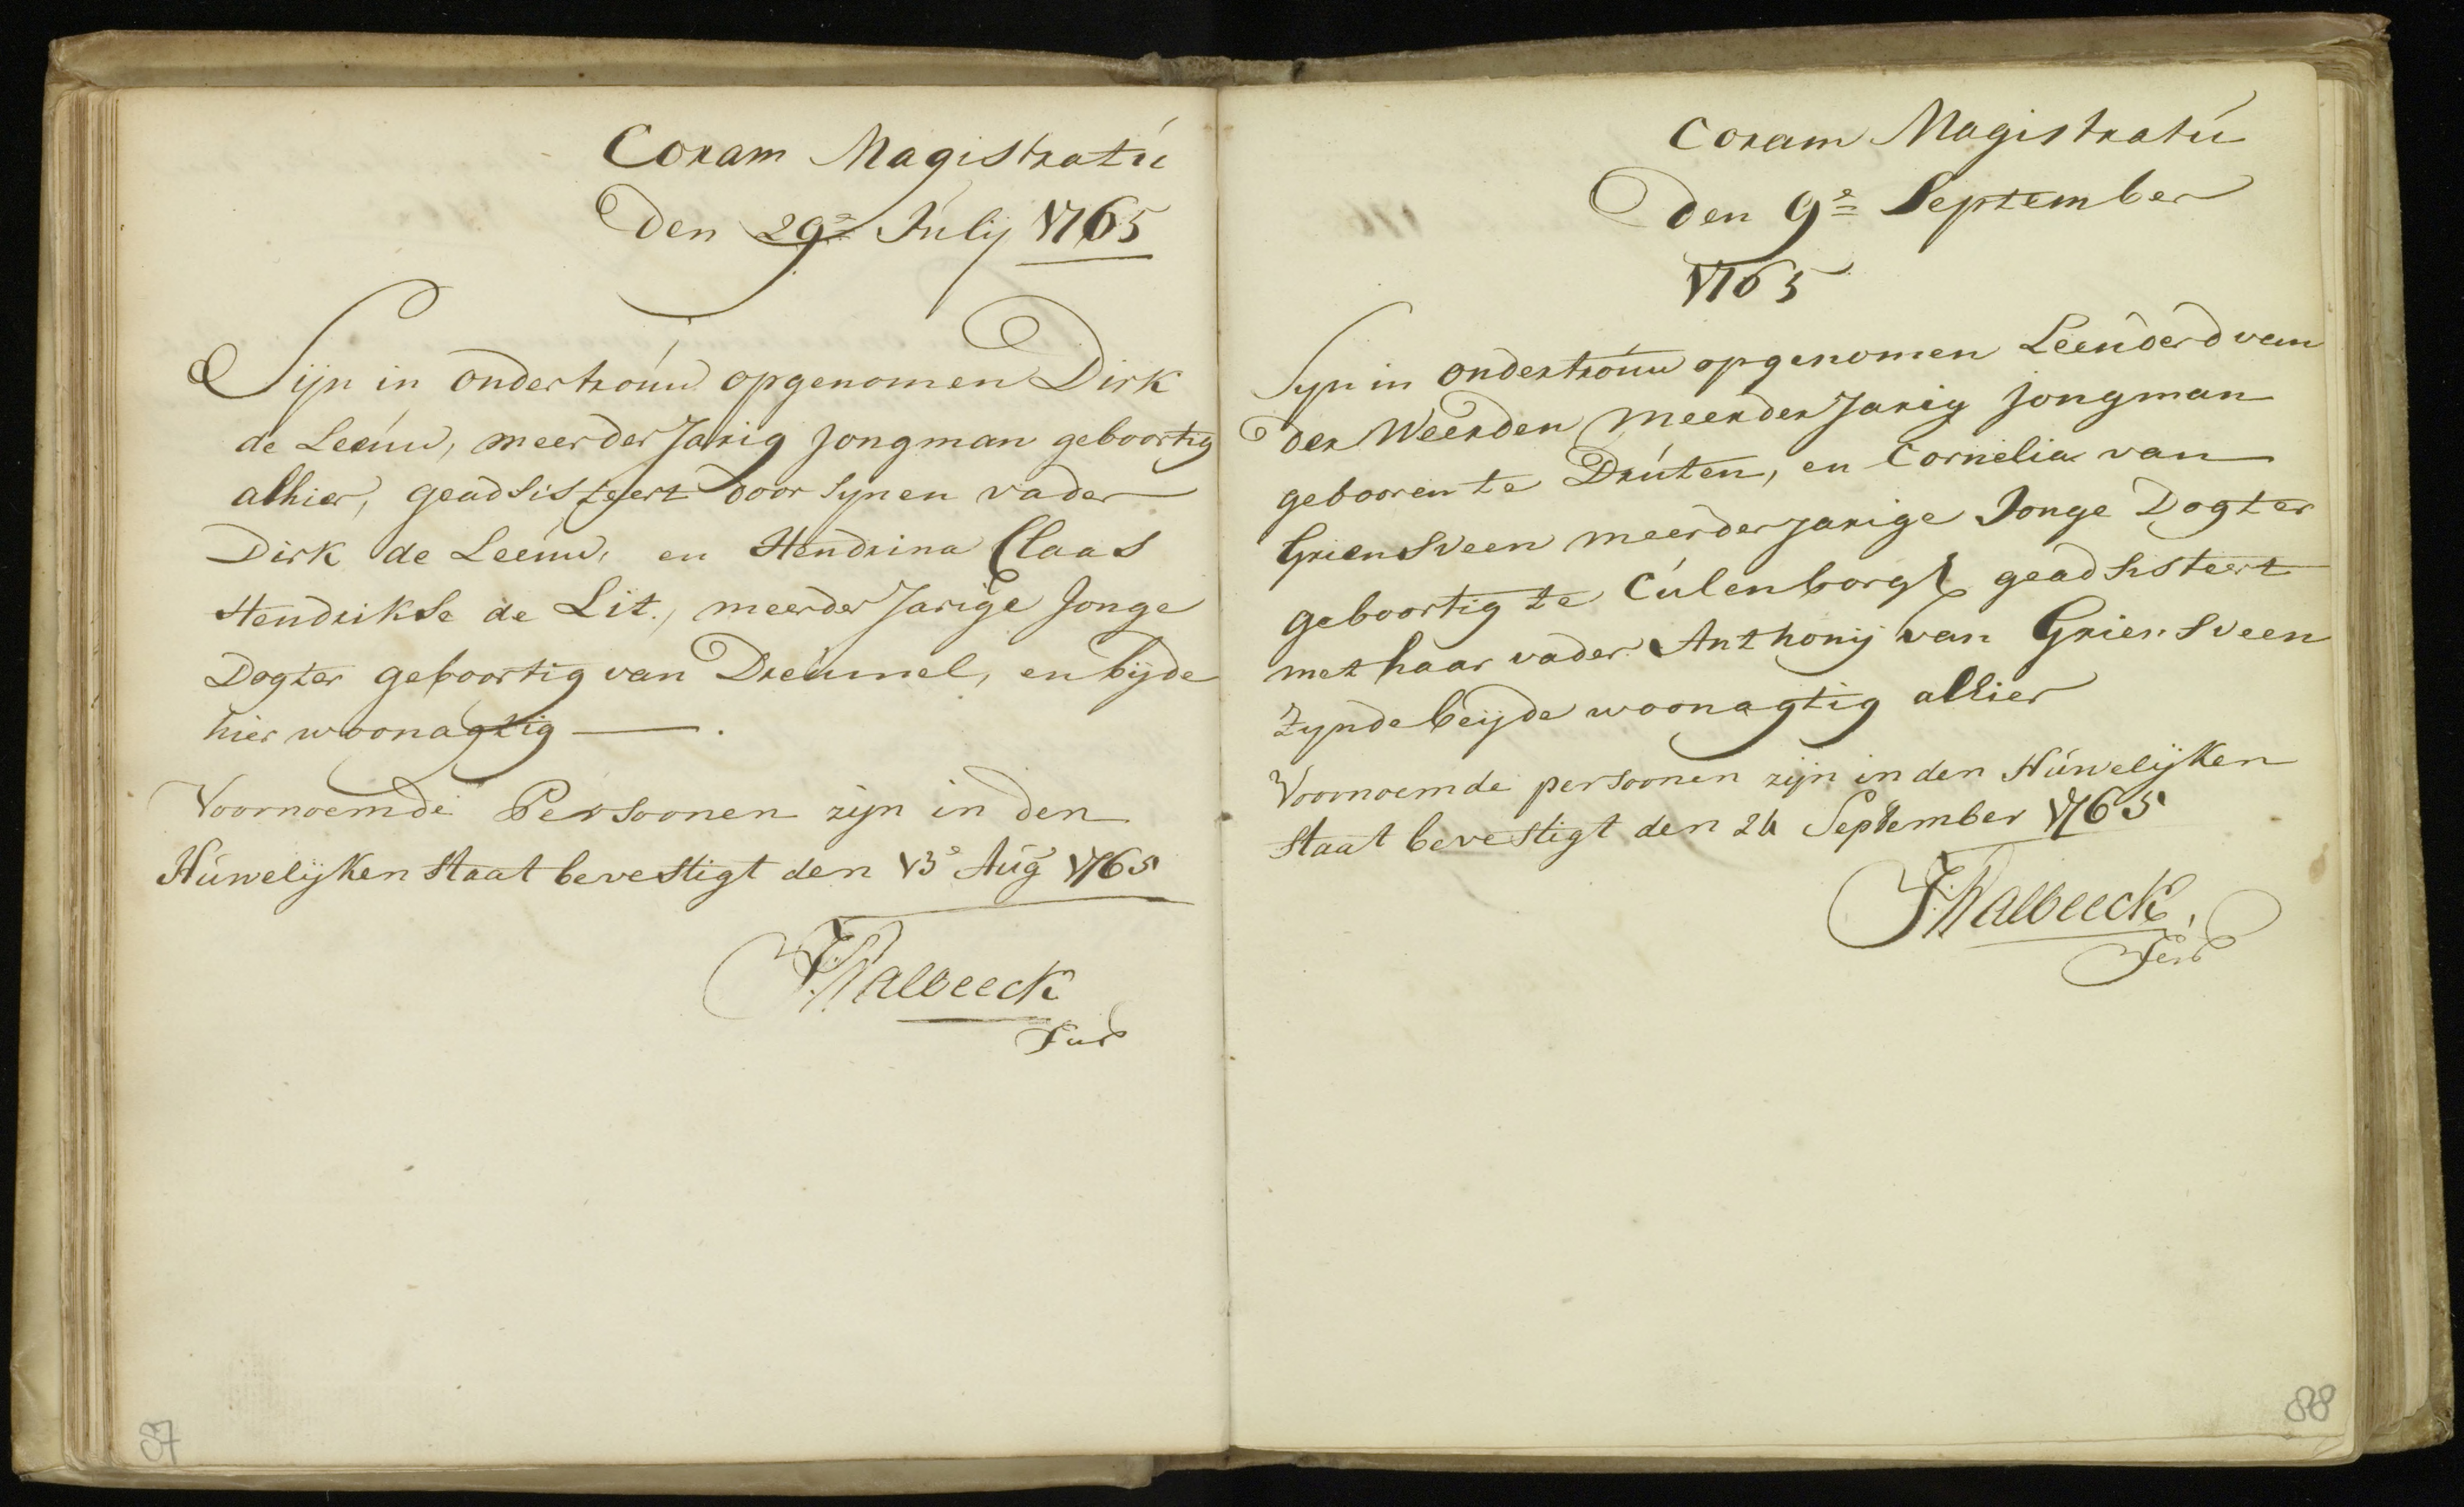 Coram Magistratú
Den 29e Júlij 1765
Sijn in ondertróúw opgenomen Dirk
de Leeúw, meerderJarig Jongman geboortig
alhier, geadsisteert door synen vader
Dirk de Leeúw, en Hendrina Claas
Hendrikse de Lit., meerderJarige Jonge
Dogter geboortig van Dreúmel, en bijde
hier woonagtig —.
Voornoemde Persoonen zijn in den
Húwelijken staat bevestigt den 13e Aúg 1765
J. Walbeeck
87
Coram Magistratú
Den 9e September
1765
Syn in ondertróúw opgenomen Leenderd van
der Weerden meerderJarig jongman
gebooren te Drúten, en Cornelia van
Griensveen meerderjarige Jonge Dogter
geboortig te Cúlenborg geadsisteert
met haar vader Anthonij van Griensveen
zynde beijde woonagtig alhier
Voornoemde persoonen zijn in den Húwelijken
staat bevestigt den 24 September 1765
J. Walbeeck,
88